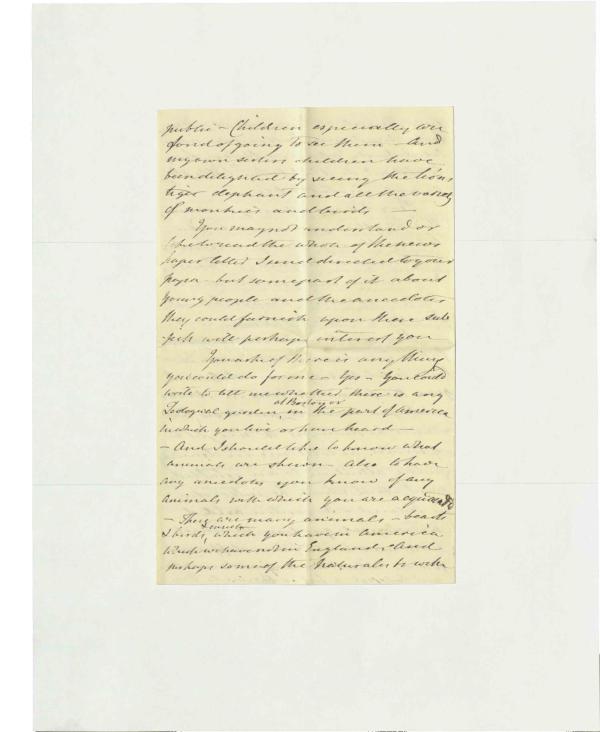 public – Children especially are
fond of going to see them – and
my own sisters children have
been delighted by seeing the lions
tiger elephant and all the variety
of monkies and birds —
You may not understand or
like to read the whole of the news
paper letter I send directed to your
papa – but some part of it about
young people and the anecdotes
they could furnish upon these sub
jects will perhaps interest you
You ask if there is any thing
you could do for me – Yes – You could
write to tell me whether there is any
at Boston or
Zoological garden, in the part of America
in which you live or have heard —
– And I should like to know what
animals are shewn – also to have
any anecdotes you know of any
animals with which you are acquainted
– There are many animals – beasts
& birds, which you have in America
which we have not in England – And
perhaps some of the Naturalists